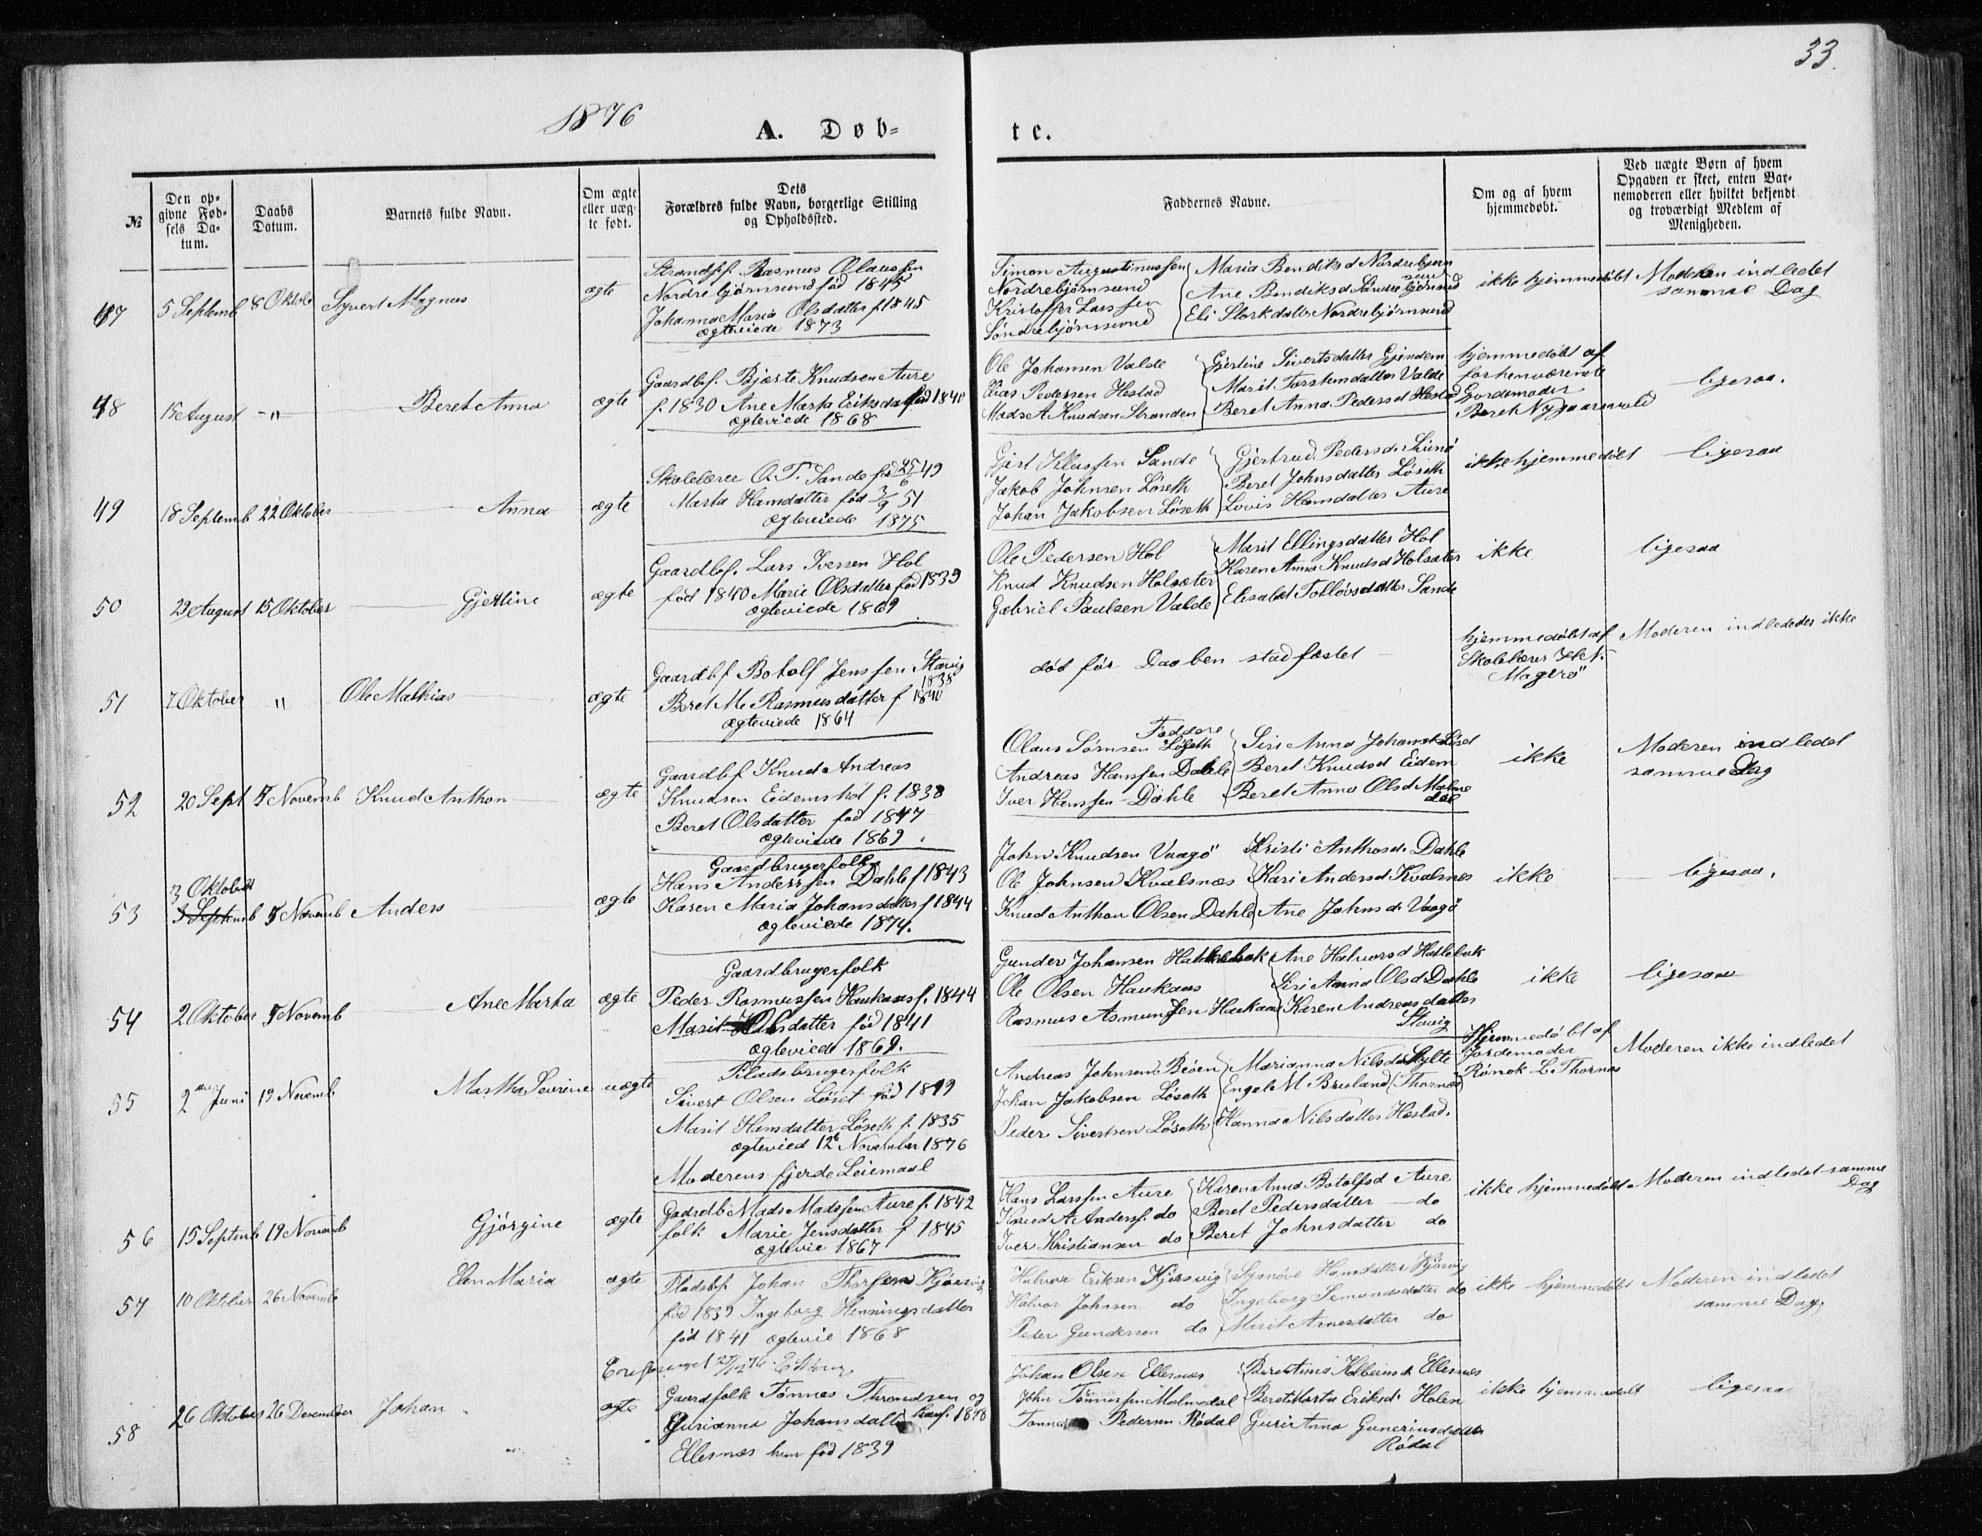 33.
1876
A. Døb-
te.
№
Den op-
givne Fød-
sels Da-
tum.
Daabs
Datum.
Barnets fulde Navn.
Om ægte
eller uæg-
te født.
Dets
Forældres fulde Navn, borgerlige Stilling
og Opholdssted.
Faddernes Navne.
Om og af hvem
hjemmedøbt.
Ved uægte Børn af hvem
Opgaven er skeet, enten Bar-
nemoderen eller hvilket bekjendt
og troværdigt Medlem af
Menigheden.
47
5 Septemb
8 Oktob
Syvert Magnus
ægte
Strandsf. Rasmus Olaussen
Nordrebjørnsund fød 1845
Johanna Maria Olsdatter f. 1845
ægteviede 1873
Simon Augustinussen
Nordrebjørnsund
Kristoffer Larssen
Søndrebjørnsund
Maria Bendiksd Nordrebjørn
sund
Ane Bendiksd Søndrebjørnsund
Eli Storkdatter Nordrebjørnsund
ikke hjemmedøbt
Moderen indledet
samme Dag
48
15 August
-"-
Beret Anna
ægte
Gaardbf. Bjærte Knudsen Aure
f. 1830 Ane Marta Eriksdat fød 1840
ægteviede 1868
Ole Johansen Valde
Elias Pedersen Hestad
Mads A Knudsen Stranden
Gjertine Sivertsdatter Gjendem
Marit Torstensdatter Valde
Beret Anna Pedersd Hestad
hjemmedøbt af
forhenværende
Gordemoder
Beret Nygaarsvold
ligesaa.
49
18 Septemb
22 Oktober
Anna
ægte
Skolelærer O. T. Sande fød 25/6 49
Marta Hansdatter fød 5/9 51
ægteviede 1875
Gjert Klassen Sande
Jakob Johnsen Løseth
Johan Jakobsen Løseth
Gjertrud Pedersd.
Beret Johnsdatter Løseth
Lovis Hansdatter Aure
ikke hjemmedøbt
ligesaa
50
29 August
15 Oktober
Gjertine
ægte
Gaardbf. Lars Iversen Hol
fød 1840 Marie Olsdatter fød 1839
ægteviede 1869
Ole Pedersen Hol
Knud Knudsen Holsæter
Gabriel Paulsen Valde
Marit Ellingsdatter Hol
Karen Anna Knutsd Holsæter
Elisabet Tolløvsdatter Sande
ikke
ligesaa
51
7 Oktober
"
Ole Mathias
ægte
Gaardbf Botolf Jenssen Stavig
1838
Beret M. Rasmusdatter f 1840
ægteviede 1864
død før Daaben stadfæstet
hjemmedøbt af
Skolelærer
Magerø
Moderen indledes ikke
52
20 Sept
5 Novemb
Knud Anthon
ægte
Gaardbf Knud Andreas
Knudsen Eidemshol f. 1838
Beret Olsdatter fød 1847
ægteviede 1869.
Faddere
Olaus Sørnsen Løseth
Andreas Hanssen Dahle
Iver Hanssen Dahle
Siri Anna Johansd Løset
Beret Knudsd Eidem
Beret Anna Olsd Malme
dal
ikke
Moderen indledet
samme Dag
53
3 Oktober
3 Septemb
5 Novemb
Anders
ægte
Gaardbrugerfolk
Hans Anderssen Dahle f 1843
Karen Maria Johansdatter f 1844
ægteviede 1874.
John Knudsen Vaagø
Ole Johnsen Kvalsnæs
Knud Anthon Olsen Dahle
Kristi Anthosd. Dahle
Kari Andersd Kvalsnes
Ane Johnsd. Vaagø
ikke
ligesaa.
54
2 Oktober
5 Novemb
Ane Marta
ægte
Gaardbrugerfolk
Peder Rasmussen Haukaas f. 1844
Marit Olsdatter fød 1841
ægteviede 1869.
Gunder Johansen Hattlebak
Ole Olsen Haukaas
Rasmus Asmundsen Haukaas
Ane Halvorsd Hatlebak
Siri Anna Olsd Dahle
Karen Andreasdatter
Stavig
ikke
ligesaa
55
2den Juni
19 Novemb
Martha Severine
uægte
Pladsbrugerfolk
Sivert Olsen Løset fød 1849
Marit Hansdatter Løseth f. 1835
ægtevied 12te November 1876
Moderens fjerde Leiemaal
Andreas Johnsen Bøen
Johan Jakobsen Løseth
Peder Sivertsen Løseth
Marianna Nilsda Hylte
Engel M Bruland (Thornæs
Hanna Nilsdatter Hestad.
Hjemmedøbt af
Jordemoder
L. Thornes
Moderen ikke indledet
56
15 Septemb
19 Novemb
Gjørgine
ægte
Gaardb Mads Madssen Aure f. 1842
folk Marie Jensdatter f 1845
ægtevie 1867
Hans Larssen Aure
Knud A Anderss. do
Iver Kristiansen do
Karen Anna Botolfsd Aure
Beret Pedersdatter do
Beret Johnsdatter do
ikke hjemmedøbt
Moderen indledet samme
Dag
57
10 Oktber
26 Novemb
Elen Maria
ægte
Pladsbf. Johan Thorsen Kjørsvig
fød 1839 Ingeborg Henningsdatter
fød 1841 ægtevie 1868
Halvor Eriksen Kjørsvig
Halvor Johnsen do
Peder Gundersen do
Synnøve Hansdatter Kjørsvig
Ingeborg Semundsdatter do
Marit Arnesdatter do
ikke hjemmedøbt
Moderen indledet
samme Dag
58
26 Oktober
26 Desember
Johan
ægte
Gaardfolk Tønnes Throndsen og
Gurianna Johansdatter han f. 1848
Ellesnæs hun fød 1839
Johan Olsen Ellesnæs
John Tønnessen Malmedal
Tønnes Pedersen Rødal
Beret Anna Kolbeinsd. Ellesnæs
Beret Marta Eriksd. Holen
Guri Anna Gunneriusdatter
Rødal
ikke hjemmedøbt
ligesaa